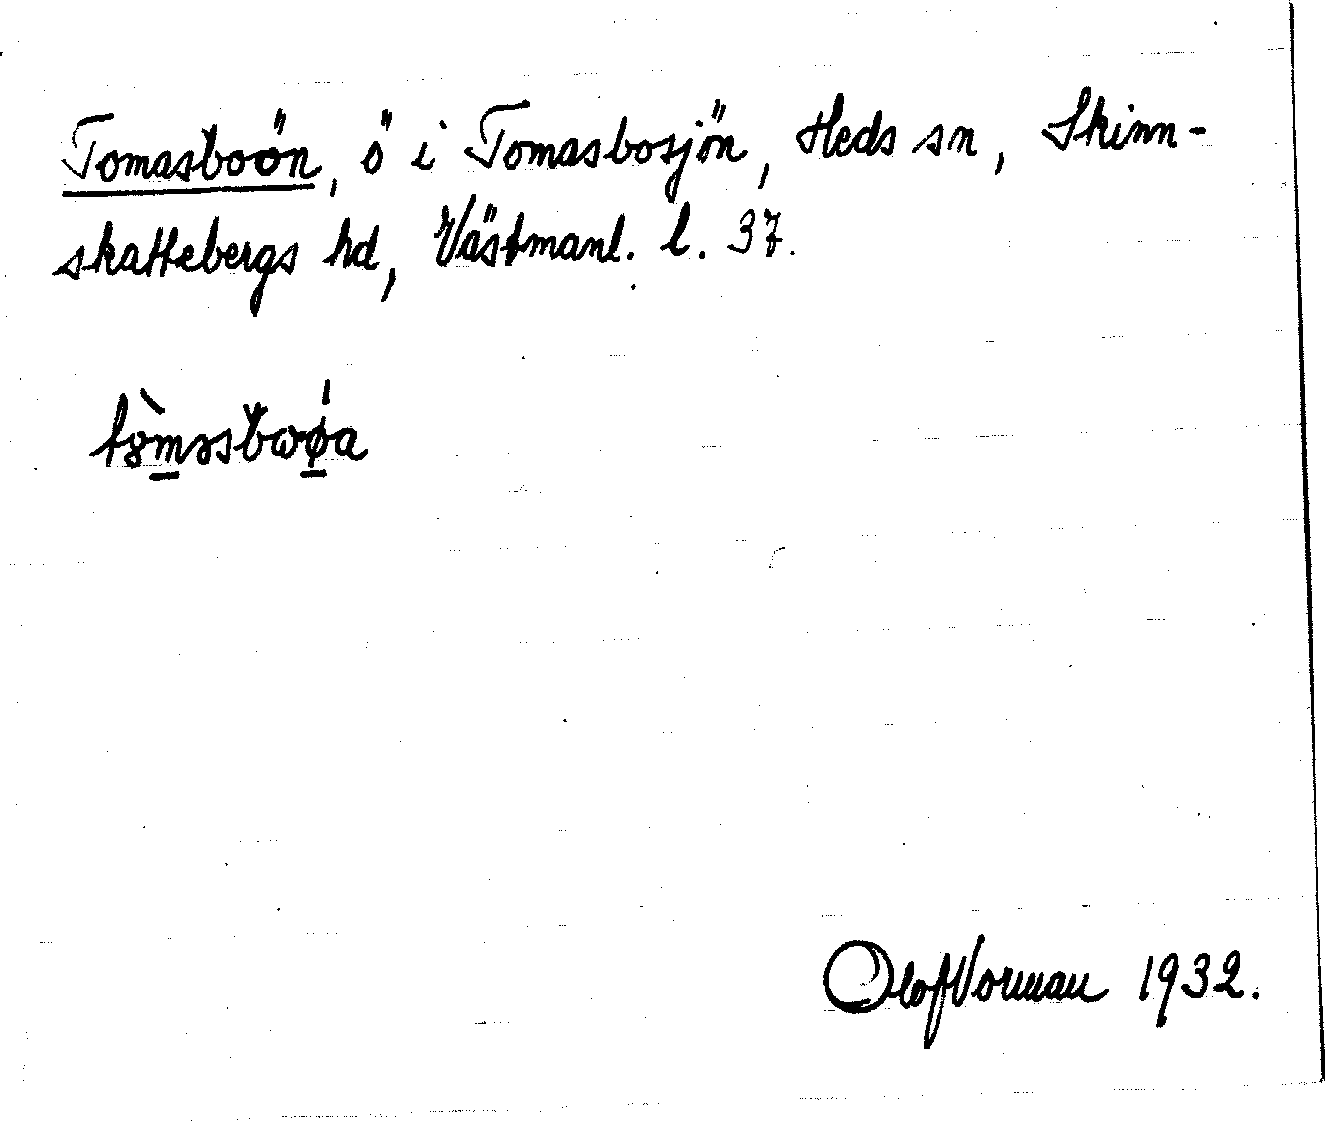 Tomasboön, ö i Tomasbosjön, Heds sn, Skinn-
skattebergs hd, Västmanl. l. 37.
Olof Norman 1932.